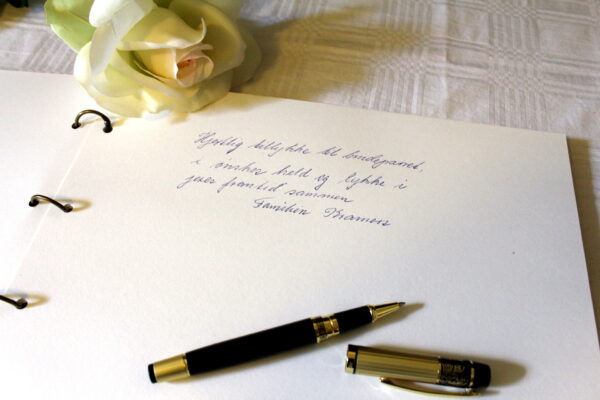 Hjertlig tillykke til brudeparret,
i ønsker held og lykke i
jeres fremtid sammen
Familien Kramers